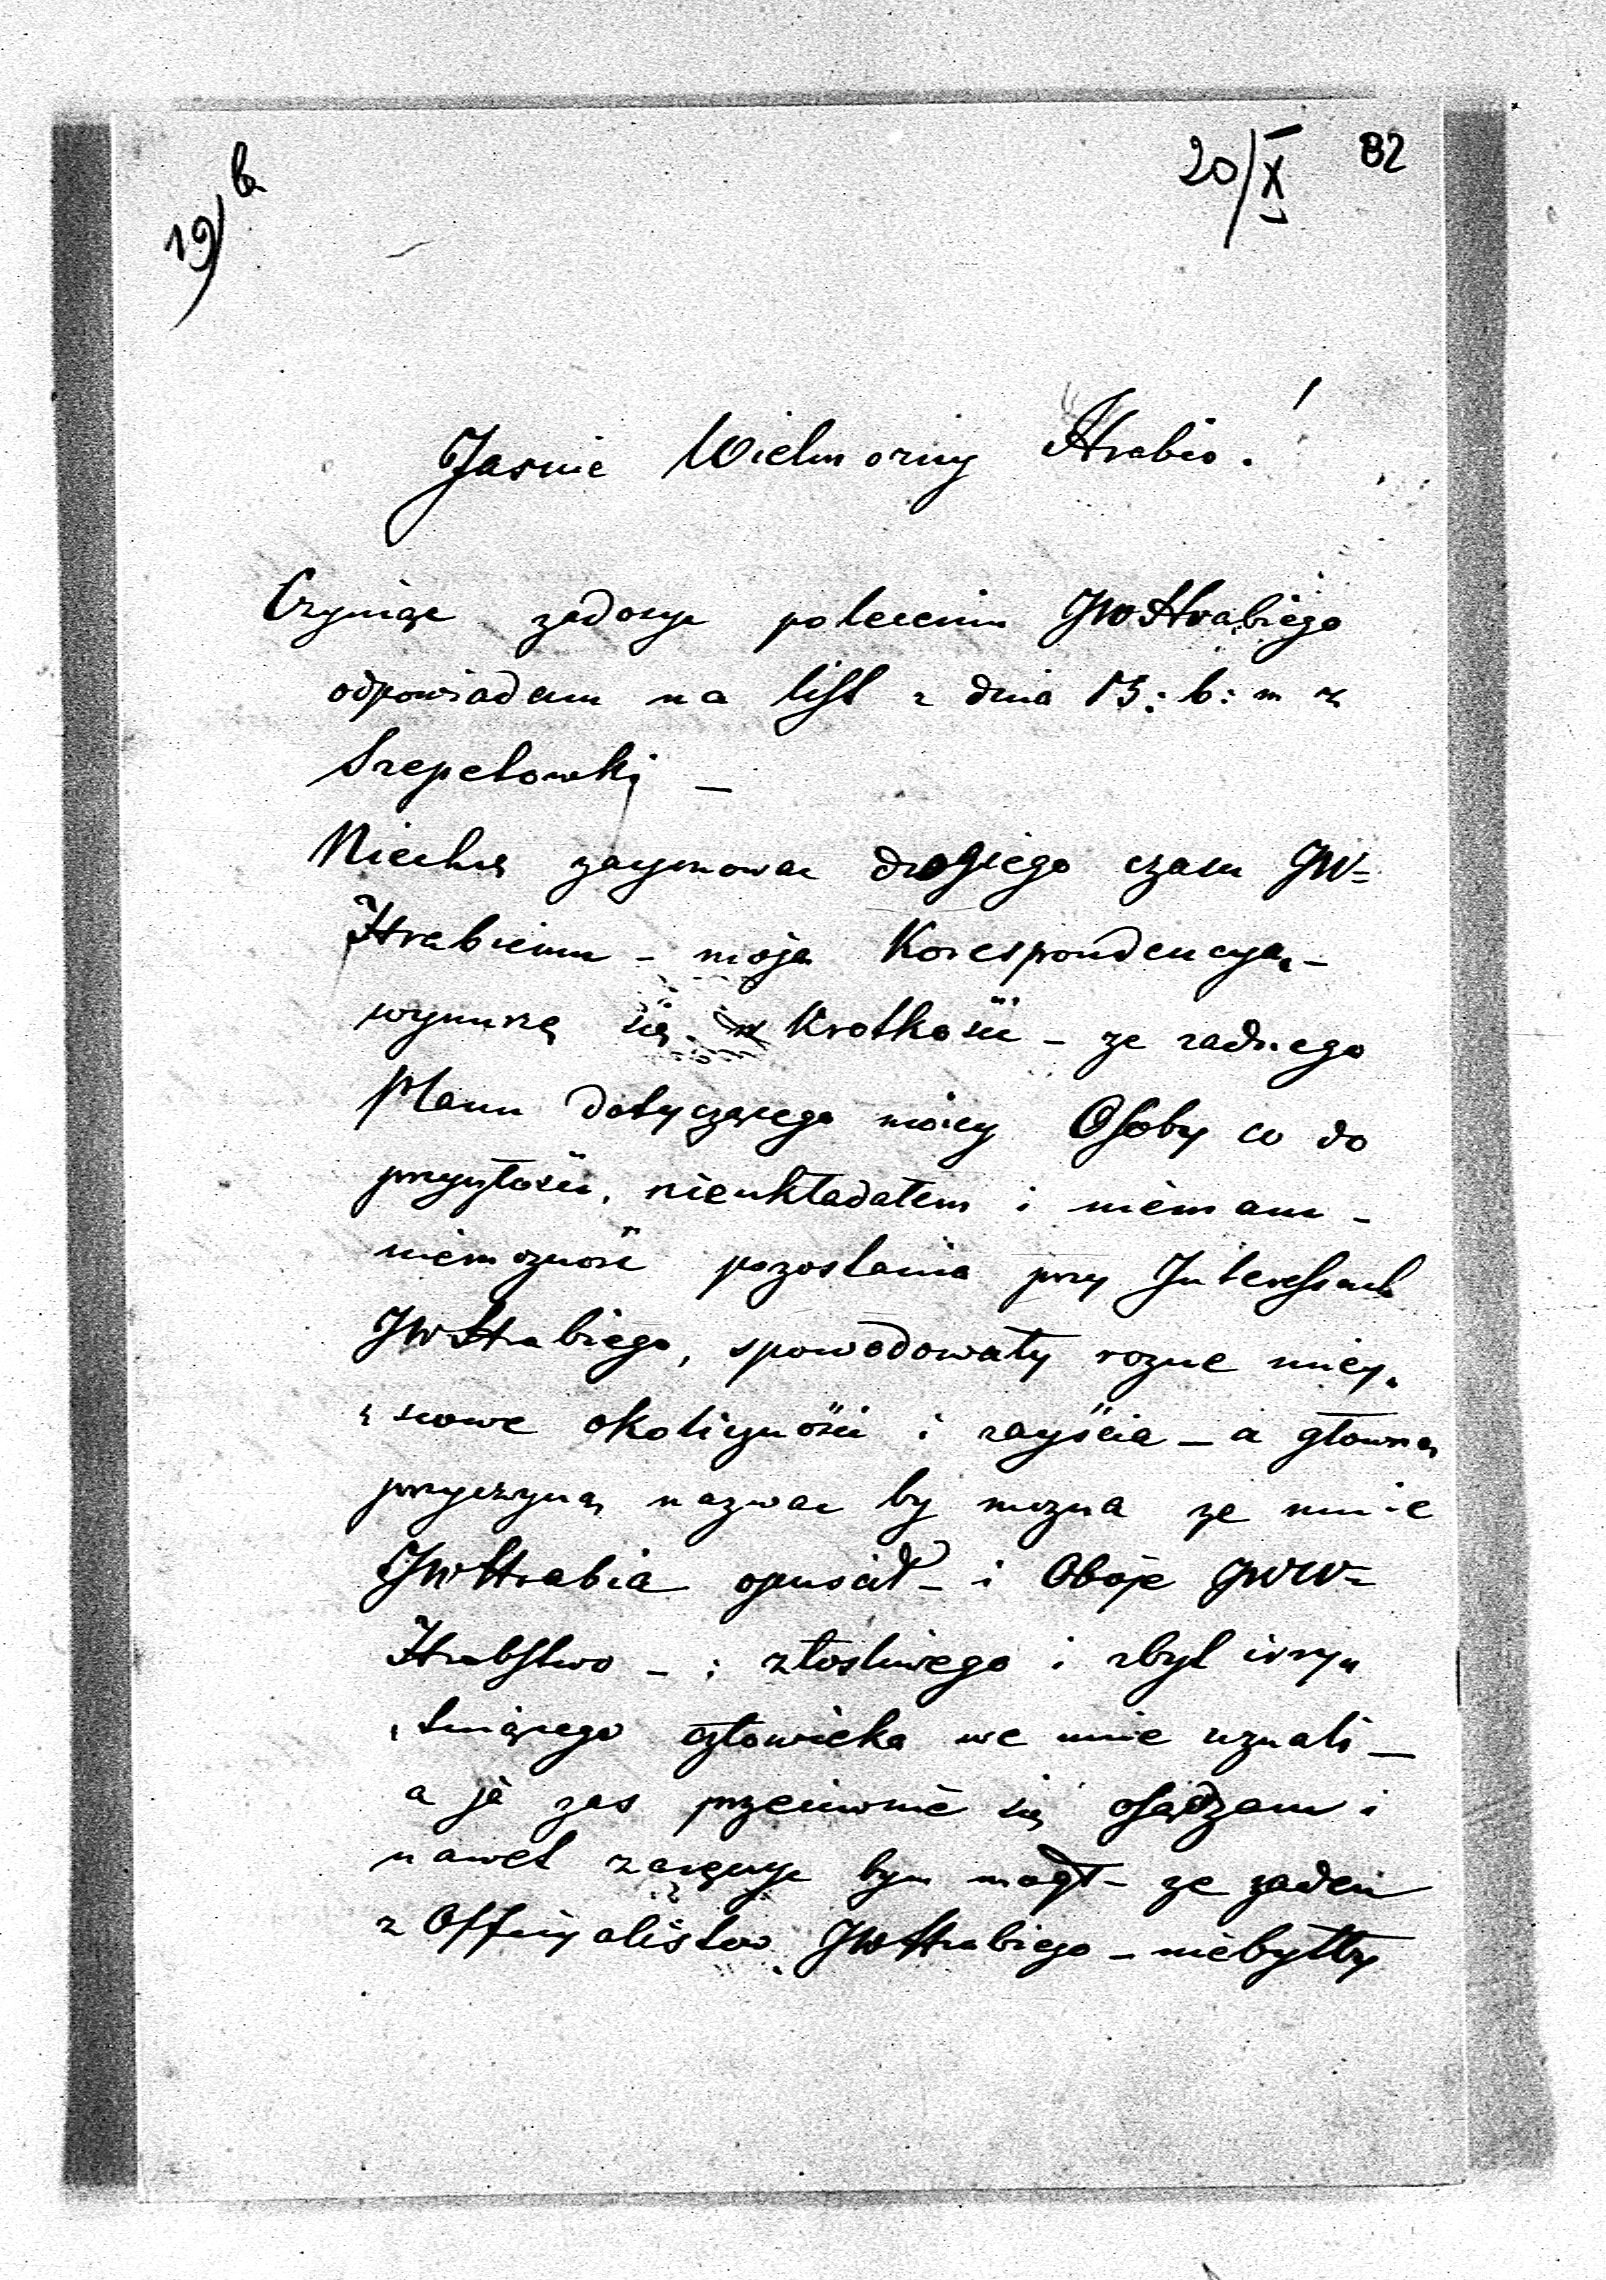 19/b
20/X 82
Jasnie Wielmozny Hrabio!
Czyniąc zadosyc poleceniu JWHrabiego
odpowiadam na list z dnia 13: b: m z
Szepetowki –
Niechcę zaymowac drogiego czasu JW=
Hrabiemu – moją Korespondencyą –
wynurzę się w Krotkości – ze zadnego
Planu dotyczącego moiey Osoby co do
przyszłości, nieukładałem i niemam –
niemozność pozostania przy Interessach
JWHrabiego, spowodowały rozne miey„
„scowe okoliczności i zayścia – a głowną
przyczyną nazwac by mozna ze mnie
JWHrabia opuscił – i Oboje JWW=
Hrabstwo – i złosliwego i zbyt
człowieka we mnie uznali –
a ja zas przeciwnie się osądzam i
nawet zaręczyc bym mogł – ze zaden
z Officyalistow JWHrabiego – niebyłby